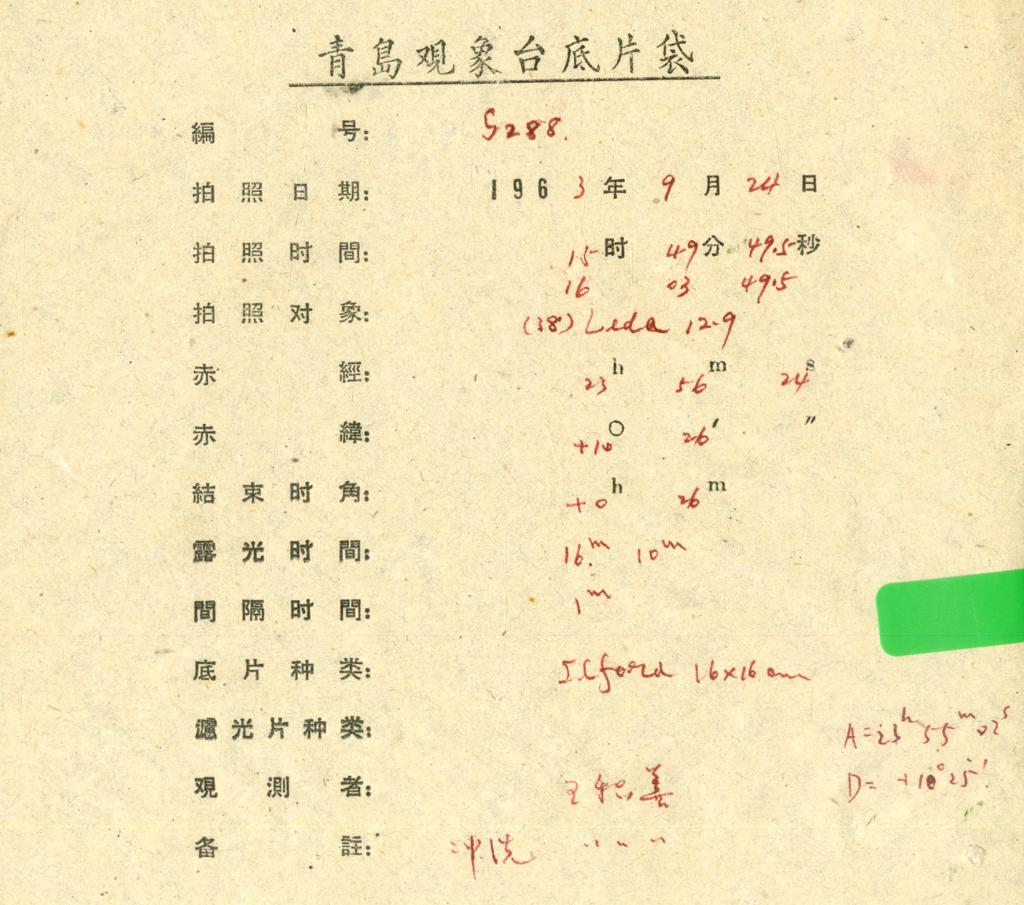 青島观象台底片袋
編号: G288.
拍照日期: 1963年9月24日
拍照时間: 15时49分49.5秒
16 03 49.5
拍照对象: (38) Leda 12.9
赤經: 23h 56m 24s
赤緯: +10° 26′ ″
結束时角: +0h 26m
露光时間: 16.m 10m
間隔时間: 1m
底片种类: Ilford 16×16cm
濾光片种类:
A=23h 55m 02s
观測者: 王 善
D= +10° 25′.
备註: 冲洗 〃 〃 〃